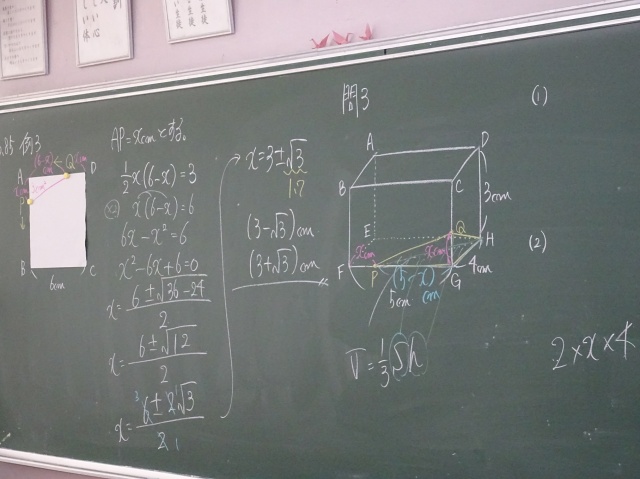 .85 例3
A
(6-x)cm
Q
xcm
D
B
C
6cm
AP=xcmとする。
1/2 x(6-x)=3
x(6-x)=6
6x-x²=6
x²-6x+6=0
x=(6±√(36-24))/2
x=(6±√12)/2
x=(6±2√3)/2
3
1
x=3±√3
1.7
(3-√3)cm
(3+√3)cm
問3
(1)
A
D
B
C
3cm
E
Q
H
(2)
F
xcm
P
xcm
(5-x)cm
G
4cm
5cm
V=1/3 Sh
2×x×4